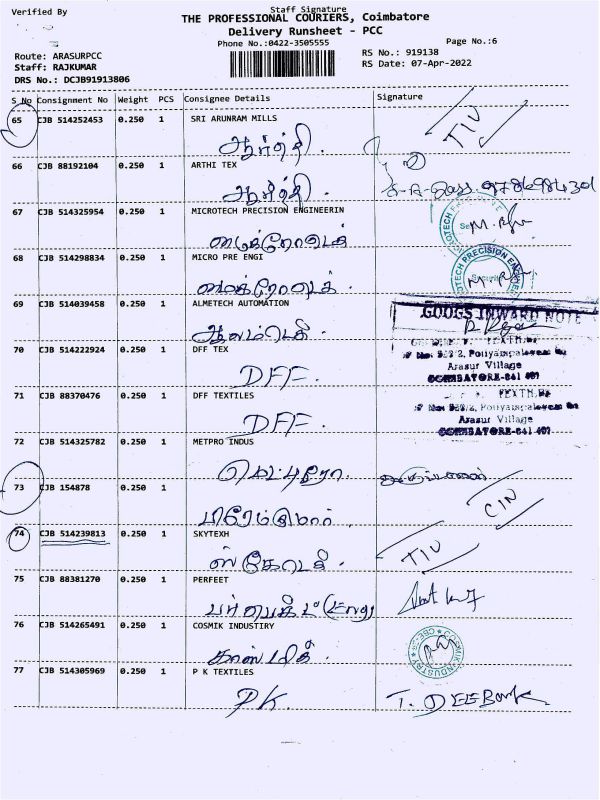 Verified By
Staff Signature
THE PROFESSIONAL COURIERS, Coimbatore
Delivery Runsheet - PCC
Phone No.:0422-3505555
Page No.:6
Route: ARASURPCC
Staff: RAJKUMAR
DRS No.: DCJB91913806
RS No.: 919138
RS Date: 07-Apr-2022
S No Consignment No Weight PCS Consignee Details Signature
65 CJB 514252453 0.250 1 SRI ARUNRAM MILLS
TIU
ஆர்த்தி.
66 CJB 88192104 0.250 1 ARTHI TEX
ஆர்த்தி.
67 CJB 514325954 0.250 1 MICROTECH PRECISION ENGINEERIN
மைக்ரோடெக்
68 CJB 514298834 0.250 1 MICRO PRE ENGI
மைக்ரோடெக்.
69 CJB 514039458 0.250 1 ALMETECH AUTOMATION
GOOGS INWARD NOTE
70 CJB 514222924 0.250 1 DFF TEX
DFF.
Arasur Village
COIMBATORE-641 407
71 CJB 88370476 0.250 1 DFF TEXTILES
DFF.
Arasur Village
COIMBATORE-641 407
72 CJB 514325782 0.250 1 METPRO INDUS
மெட்புரோ.
73 CJB 154878 0.250 1
CIN
74 CJB 514239813 0.250 1 SKYTEXH
TIU
75 CJB 88381270 0.250 1 PERFEET
76 CJB 514265491 0.250 1 COSMIK INDUSTIRY
காஸ்மிக்.
COSMIK INDUSTRY
77 CJB 514305969 0.250 1 P K TEXTILES
PK. T. DEEBank